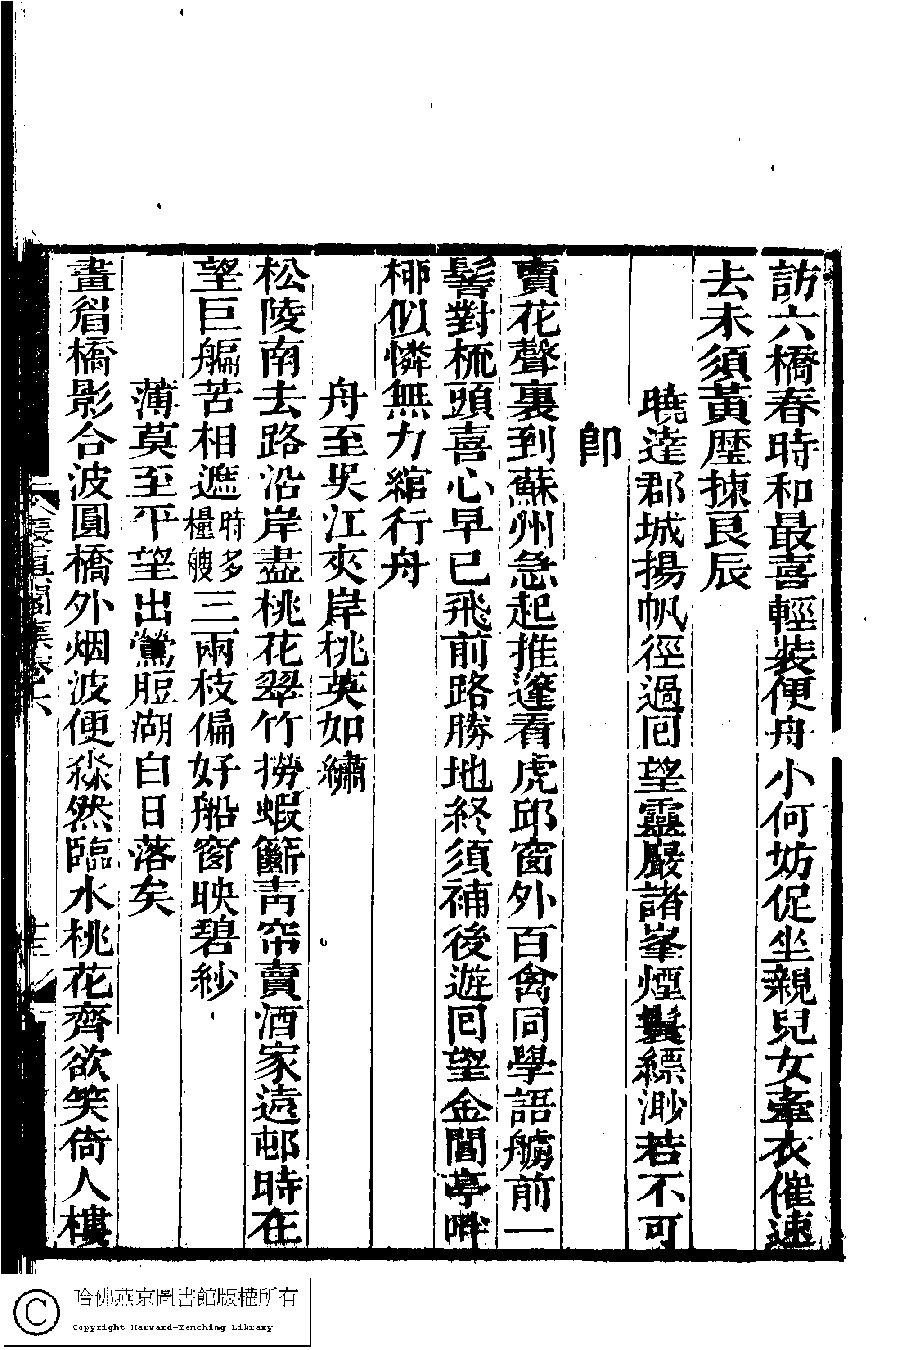 訪六橋春時和最喜輕装便舟小何妨促坐親兒女牽衣催速
去未須黃歴揀良辰
曉達郡城揚帆徑過囘望靈嚴諸峯煙鬟縹渺若不可
卽
賣花聲裏到蘇州急起推篷看虎邱窗外百禽同學語艣前一
髻對梳頭喜心早已飛前路勝地終須補後遊囘望金閶亭畔
栁似憐無力綰行舟
舟至吳江夾岸桃英如繡
松陵南去路沿岸盡桃花翠竹撈蝦籪靑帘賣酒家遠邨時在
望巨艑苦相遮時多糧艘三兩枝偏好船窗映碧紗
薄莫至平望出鶯脰湖白日落矣
畫眉橋影合波圓橋外烟波便淼然臨水桃花齊欲笑倚人樓
長真閣集卷六
哈佛燕京圖書館版權所有
Copyright Harvard-Yenching Library